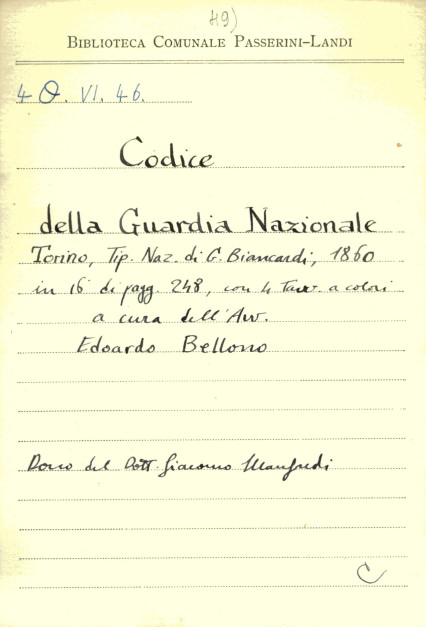 49)
BIBLIOTECA COMUNALE PASSERINI-LANDI
4 O. VI. 46.
Codice
della Guardia Nazionale
Torino, Tip. Naz. di G. Biancardi, 1860
in 16° di pagg. 248, con 4 tavv. a colori
a cura dell'Avv.
Edoardo Bellono
Dono del Dott. Giacomo Manfredi
C